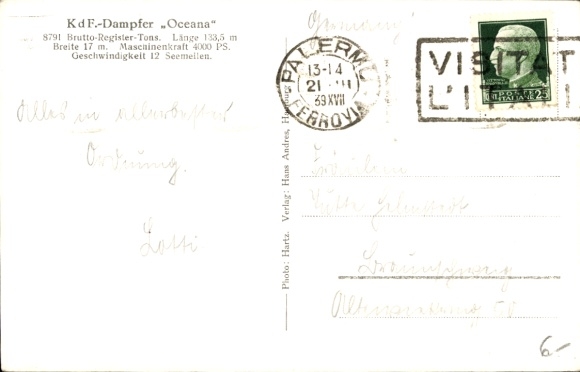 KdF.-Dampfer „Oceana"
8791 Brutto-Register-Tons. Länge 133,5 m
Breite 17 m. Maschinenkraft 4000 PS.
Geschwindigkeit 12 Seemeilen.
Alles in allerbester
Ordnung.
Lotti
Photo: Hartz. Verlag: Hans Andres, Hamburg
Germany
PALERMO
13-14
21
39 XVII
FERROVIA
VISITAT
L'ITALI
POSTE
ITALIANE
Fräulein
Braunschweig
6-